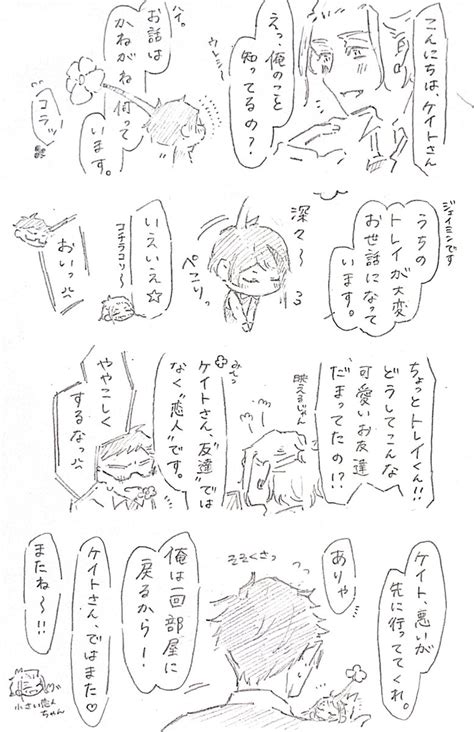 こんにちは、ケイトさん
えっ、俺のこと
知ってるの?
ウレシ〜
ハイ。
お話は
かねがね伺って
います。
コラッ
ジェイミンです
うちの
トレイが大変
お世話になって
います。
深々〜る
ペこりっ
いえいえ☆
コチラコソ〜
おいっ
ちょっとトレイくん!!
どうしてこんな
可愛いお友達
だまってたの!?
映えるじゃん
ケイトさん、"友達"では
なく"恋人"です。
ややこしく
するなっ
ケイト、悪いが
先に行っててくれ。
ありゃ
そそくさっ
俺は一回部屋に
戻るから!
ケイトさん、ではまた♡
またね〜!!
小さい恋人
ちゃん